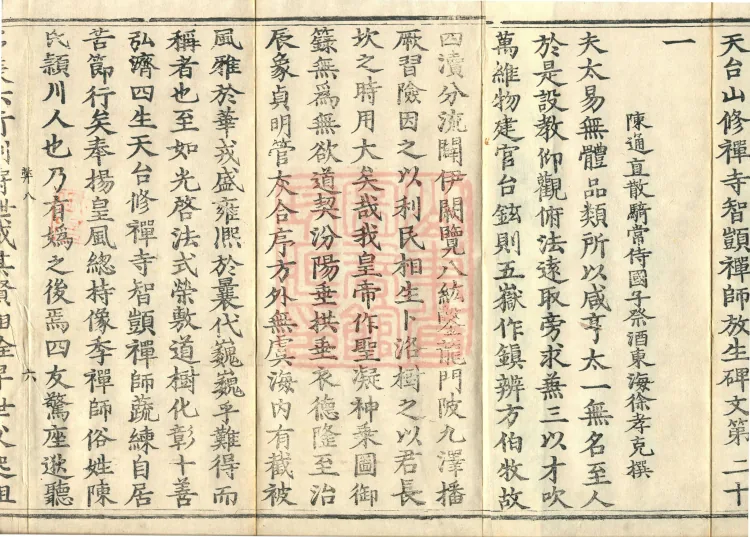 天台山修禪寺智顗禪師放生碑文第二十
一
陳通直散騎常侍國子祭酒東海徐孝克撰
夫太易無體品類所以咸亨太一無名至人
於是設教仰觀俯法遠取旁求蕪三以才吹
萬維物建官台鉉則五嶽作鎮辨方伯牧故
四瀆分流闢伊闕覽八紘鑿龍門陂九澤播
厥習險因之以利民相生卜洛樹之以君長
坎之時用大矣哉我皇帝作聖凝神乘圖御
籙無為無欲道契汾陽垂拱垂衣德隆至治
辰象貞明管灰合序方外無虞海內有截被
風雅於華戎盛雍熈於曩代巍巍乎難得而
稱者也至如光啓法式榮敷道樹化彰十善
弘濟四生天台修禪寺智顗禪師蔬練自居
苦節行矣奉揚皇風總持像季禪師俗姓陳
氏頴川人也乃有媯之後焉四友驚座逖聽
弊八
六